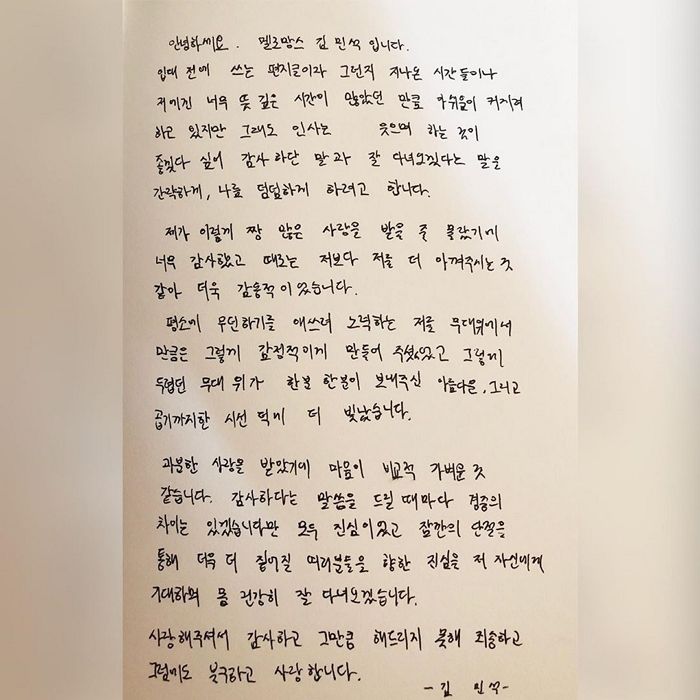 안녕하세요. 멜로망스 김민석입니다.
입대 전에 쓰는 편지글이라 그런지 지나온 시간들이나
저에겐 너무 뜻 깊은 시간이 많았던 만큼 아쉬움이 커지려
하고 있지만 그래도 인사는 웃으며 하는 것이
좋겠다 싶어 감사하단 말과 잘 다녀오겠다는 말을
간략하게, 나름 덤덤하게 하려고 합니다.
제가 이렇게 짱 많은 사랑을 받을 줄 몰랐기에
너무 감사했고 때로는 저보다 저를 더 아껴주시는 것
같아 더욱 감동적이었습니다.
평소에 무던하기를 애쓰려 노력하는 저를 무대위에서
만큼은 그렇게 감정적이게 만들어 주셨었고 그렇게
두렵던 무대 위가 한분 한분이 보내주신 아름다운, 그리고
곱기까지한 시선 덕에 더 빛났습니다.
과분한 사랑을 받았기에 마음이 비교적 가벼운 것
같습니다. 감사하다는 말씀을 드릴 때마다 경중의
차이는 있겠습니다만 모두 진심이었고 잠깐의 단절을
통해 더욱 더 짙어질 여러분들을 향한 진심을 저 자신에게
기대하며 몸 건강히 잘 다녀오겠습니다.
사랑해주셔서 감사하고 그만큼 해드리지 못해 죄송하고
그럼에도 불구하고 사랑합니다.
-김 민석-